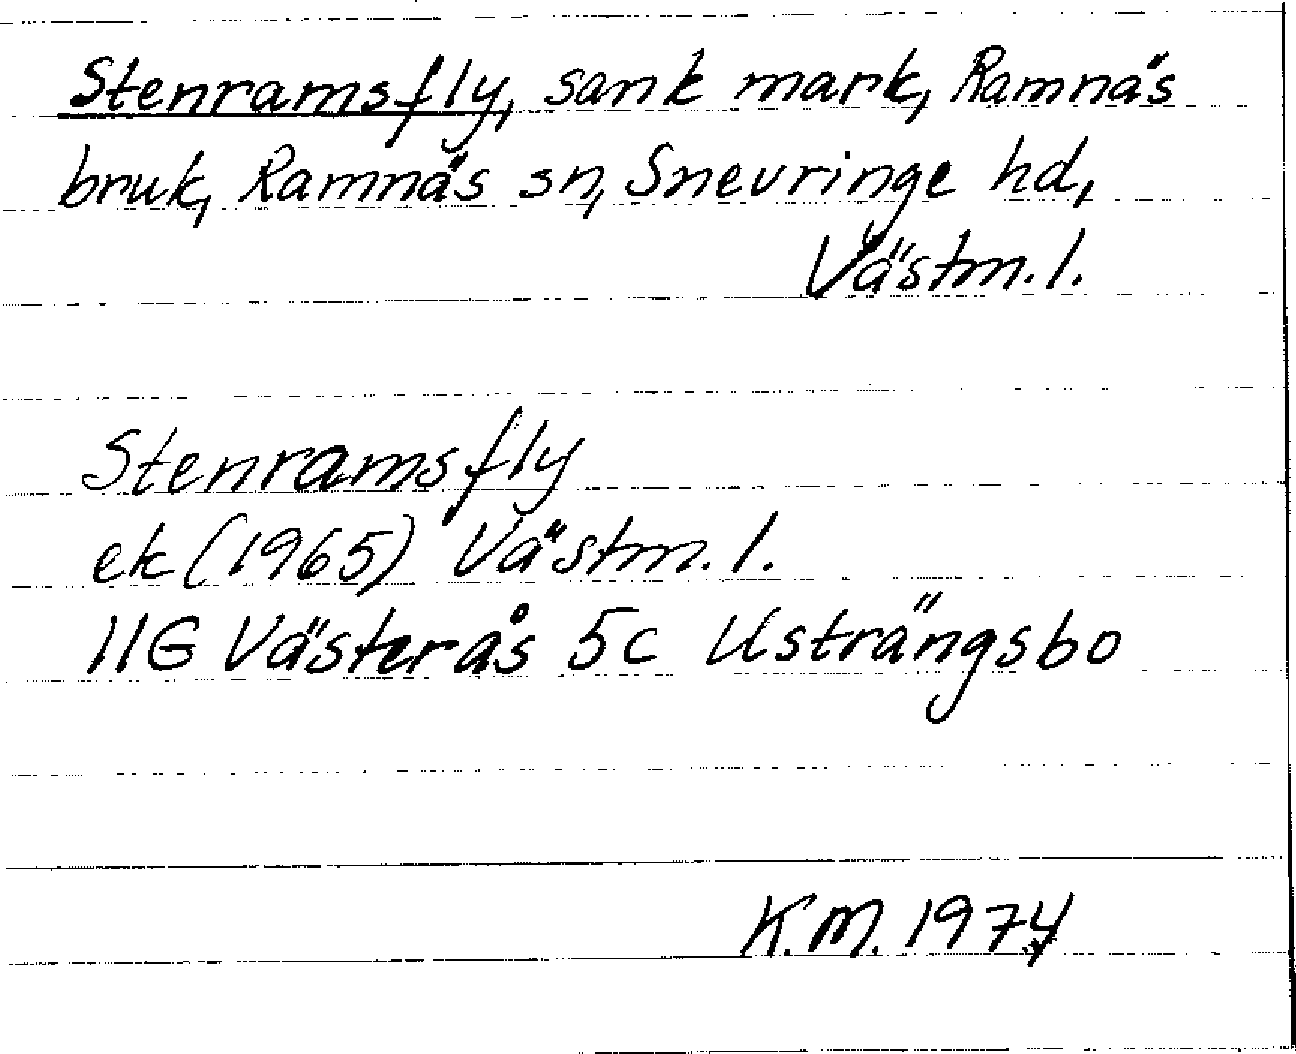 Stenramsfly, sank mark, Ramnäs
bruk, Ramnäs sn, Snevringe hd,
Västm. l.
Stenramsfly
ek (1965) Västm. l.
11G Västerås 5c Usträngsbo
K.M. 1974